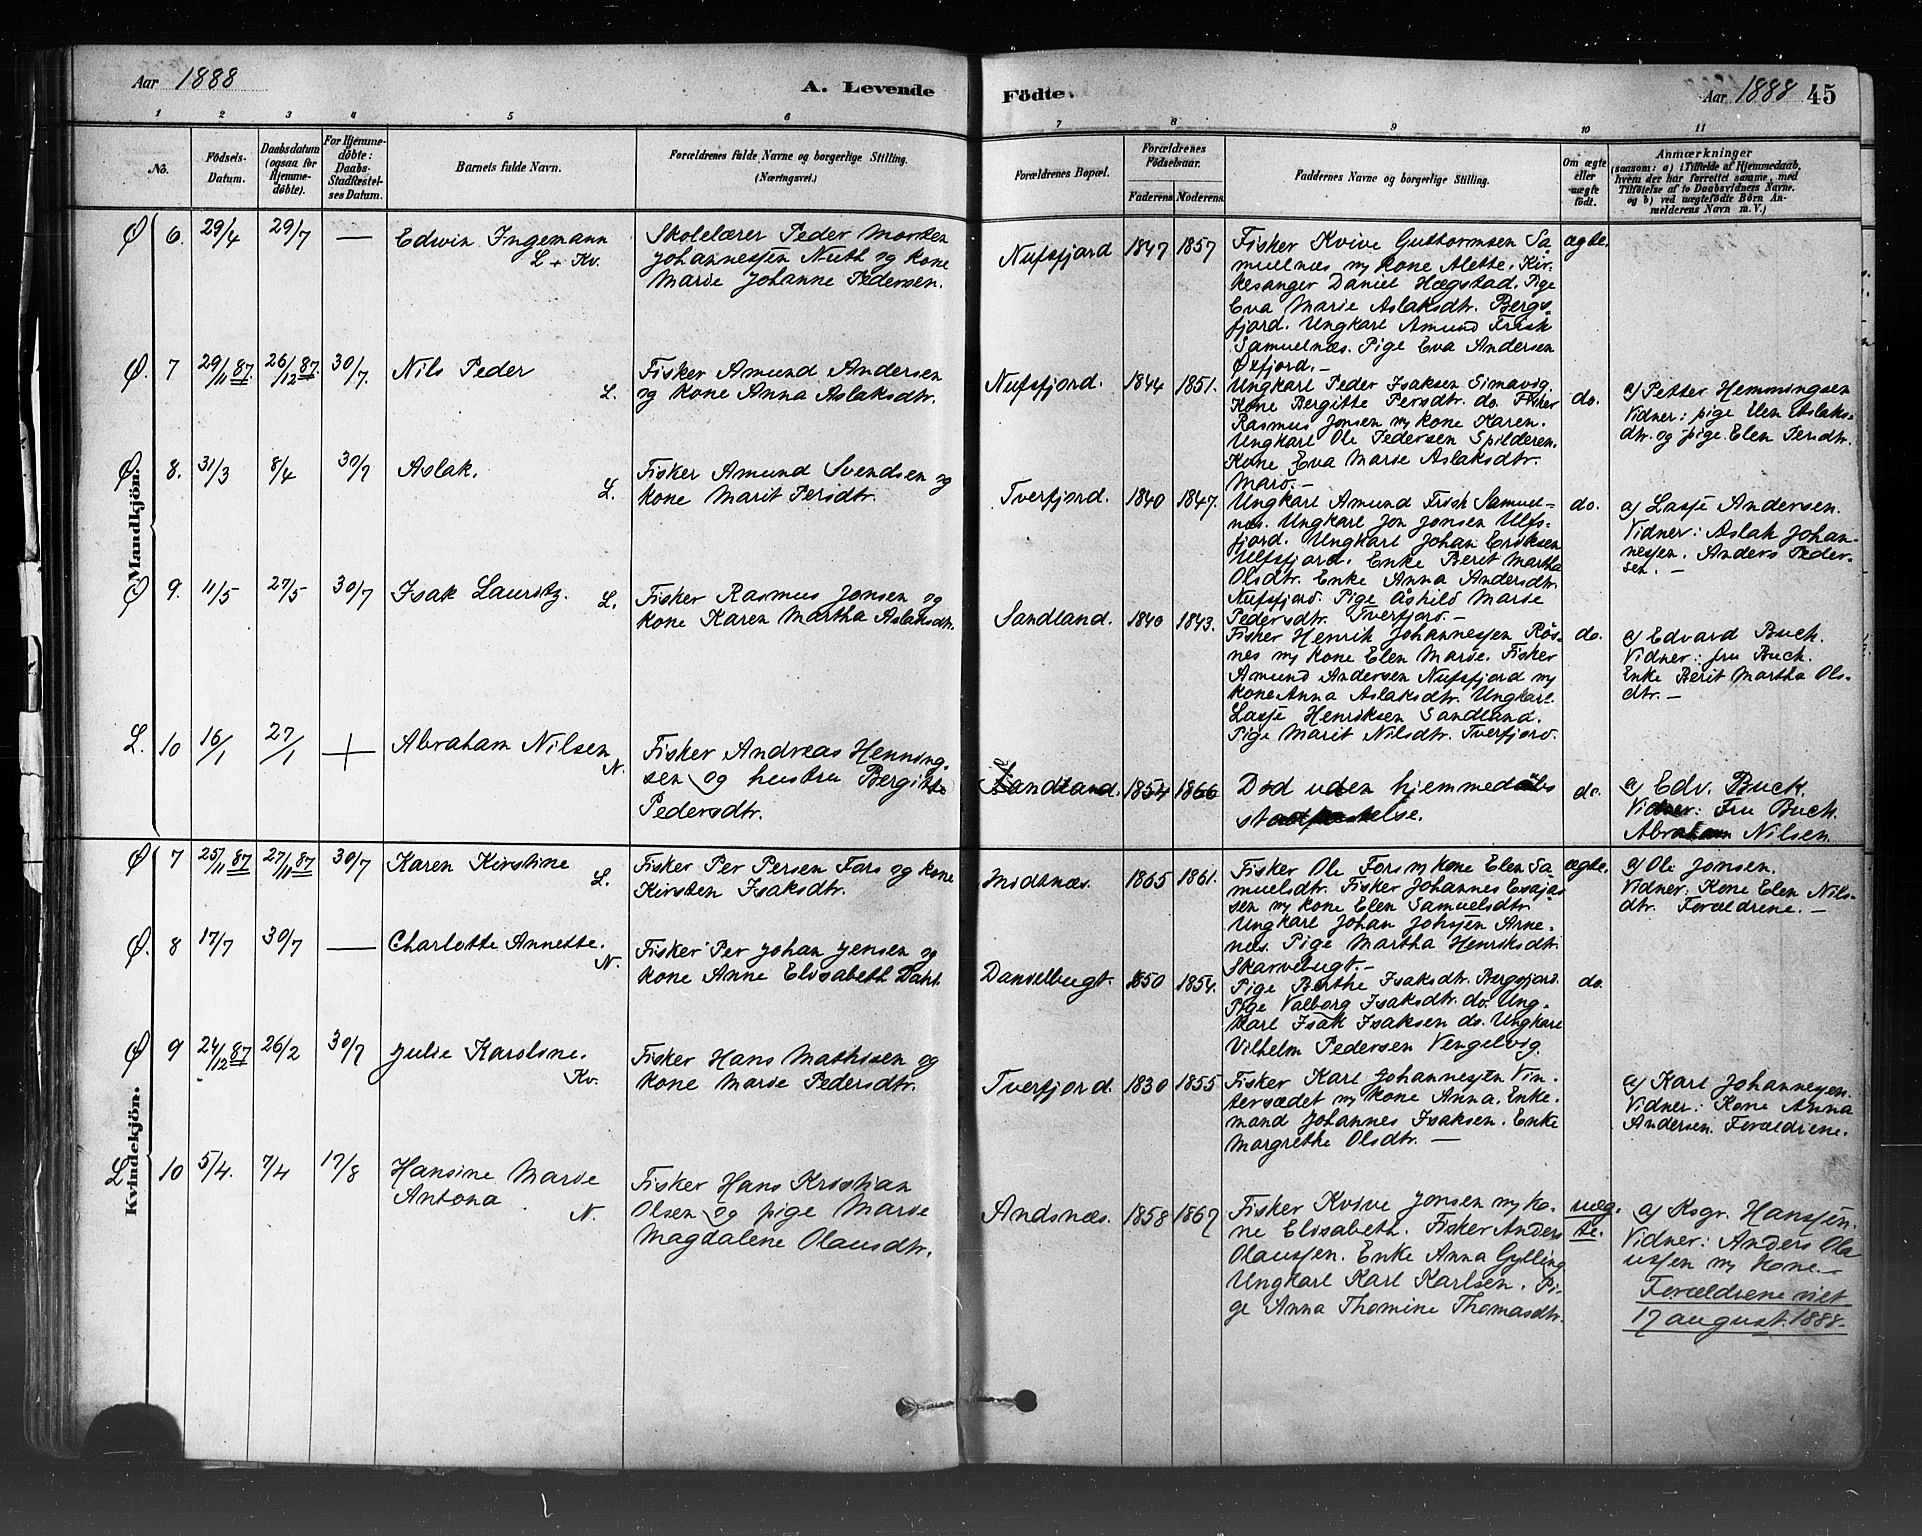 Aar 1888
A. Levende
Födte.
Aar 1888 45
1 2 3 4 5 6 7 8 9 10 11
No.
Födsels-
Datum.
Daabsdatum
(ogsaa for
Hjemme-
döbte).
For Hjemme-
döbte:
Daabs-
Stadfæstel-
ses Datum.
Barnets fulde Navn.
Forældrenes fulde Navne og borgerlige Stilling.
(Næringsvei.)
Forældrenes Bopæl.
Forældrenes
Födselsaar.
Faderens Moderens
Faddernes Navne og borgerlige Stilling.
Om ægte
eller
uægte
født.
Anmærkninger
(saasom: a) i Tilfælde af Hjemmedaab,
hvem der har forrettet samme, med
Tilföielse af to Daabsvidners Navne.
og b) ved uægtefödte Börn An-
melderens Navn m. V.)
Mandkjön.
Ø 6. 29/4 29/7 — Edwin Ingemann
L + Kv.
Skolelærer Peder Morten
Johannessen Nuth og kone
Marie Johanne Pedersen.
Nufsfjord 1847 1857
Fisker Kvive Guttormsen Sa
muelnæs m/ kone Alette. Kir-
kesanger Daniel Hægstad. Pige
Eva Marie Aslaksdtr. Bergs-
fjord. Ungkarl Amund Frisk
Samuelnæs. Pige Eva Andersen
Øxfjord.—
ægte.
Ø. 7 29/11 87. 26/12 87. 30/7. Nils Peder
L.
Fisker Amund Andersen
og kone Anna Aslaksdtr.
Nufsfjord. 1844 1851.
Ungkarl Peder Isaksen Simavig.
Kone Bergitte Persdtr. do. Fisker
Rasmus Jonsen m/ kone Karen.
Ungkarl Ole Pedersen Spilderen.
Kone Eva Marie Aslaksdtr.
Marö.—
do.
a) Petter Hemmingsen
Vidner: pige Elen Aslaks-
dtr. og pige Elen Persdtr.
Ø 8. 31/3 8/4 30/7 Aslak.
L.
Fisker Amund Svendsen og
kone Marit Persdtr.
Tverfjord. 1840 1847.
Ungkarl Amund Frisk Samuel-
næs. Ungkarl Jon Jonsen Ulfs-
fjord. Ungkarl Johan Eriksen
Ulfsfjord. Enke Berit Martha
Olsdtr. Enke Anna Andersdtr.
Nufsfjord. Pige Åshild Marie
Pedersdtr. Tverfjord.—
do.
a) Lasse Andersen.
Vidner: Aslak Johan-
nessen. Anders Peder-
sen. —
Ø 9. 11/5 27/5 30/7 Isak Lauritz.
L.
Fisker Rasmus Jonsen og
kone Karen Martha Aslaksdtr.
Sandland. 1840 1843.
Fisker Henrik Johannessen Rös-
nes m/ kone Elen Marie. Fisker
Amund Andersen Nufsfjord m/
kone Anna Aslaksdtr. Ungkarl
Lasse Henriksen Sandland.
Pige Marit Nilsdtr. Tverfjord.
do.
a) Edvard Buch.
Vidner: fru Buch.
Enke Berit Martha Ols-
dtr.—
L. 10 16/1 27/1 + Abraham Nilsen
N.
Fisker Andreas Henning-
sen og hustru Bergitte
Pedersdtr.
Sandland. 1854 1866
Död uden hjemmedåbs
stadfæstelse.
do.
a) Edv. Buck.
Vidner: Fru Buch.
Abraham Nilsen.
Kvindekjön.
Ø 7 25/11 87 27/11 87 30/7 Karen Kirstine
L.
Fisker Per Persen Fors og kone
Kirsten Isaksdtr.
Midtnæs. 1865 1861.
Fisker Ole Fors m/ kone Elen Sa
muelsdtr. Fisker Johannes Esajas
sen m/ kone Elen Samuelsdtr.
Ungkarl Johan Johnsen Arne-
næs. Pige Martha Henriksdtr.
Skarvebugt.—
ægte.
a) Ole Jonsen.
Vidner: Kone Elen Nils-
dtr. Forældrene.—
Ø. 8 17/7 30/7 — Charlotte Annette.
N.
Fisker Per Johan Jensen og
kone Anne Elisabeth Dahl.
Danielbugt. 1850 1854.
Pige Berthe Isaksdtr. Bergsfjord.
Pige Valborg Isaksdtr. do. Ung-
karl Isak Isaksen do. Ungkarl
Vilhelm Pedersen Vengelvig.
do.
Ø 9 24/12 87 26/2 30/7 Julie Karoline.
Kv.
Fisker Hans Mathisen og
kone Marie Pedersdtr.
Tverfjord. 1830 1855
Fisker Karl Johannessen Vin-
tersædet m/ kone Anna. Enke-
mand Johannes Isaksen. Enke
Margrethe Olsdtr. —
a) Karl Johannessen.
Vidner: Kone Anna
Andersen. Forældrene.
L 10 5/4. 7/4 17/8 Hansine Marie
Antona
N.
Fisker Hans Kristian
Olsen og pige Marie
Magdalene Olausdtr.
Andsnæs. 1858 1867
Fisker Kvive Jonsen m/ ko-
ne Elisabeth. Fisker Anders
Olaussen. Enke Anna Gylling
Ungkarl Karl Karlsen. Pi-
ge Anna Thomine Thomasdtr.
uæg-
te.
a) Ksgr. Hanssen.
Vidner: Anders Ola
ussen m/ kone.—
Forældrene viet
17 august. 1888.